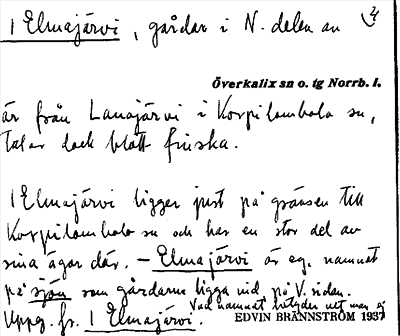 1 Elmajärvi, gårdar i N. delen av
Överkalix sn o. tg Norrb. l.
är från Lanajärvi i Korpilombolo sn,
talar dock blott finska.
1 Elmajärvi ligger just på gränsen till
Korpilombolo sn och har en stor del av
sina ägor där. – Elmajärvi är eg. namnet
på sjön som gårdarna ligga vid på V. sidan.
Vad namnet betyder vet man ej
Uppg. fr. 1 Elmajärvi.
EDVIN BRÄNNSTRÖM 1937